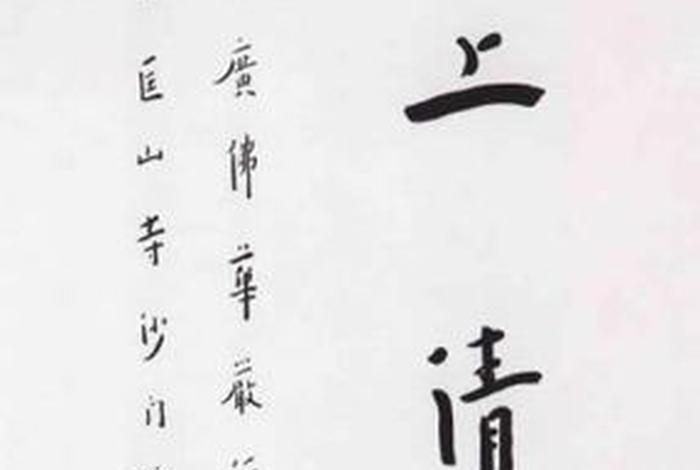 上清
廣佛華嚴
匡山寺沙门